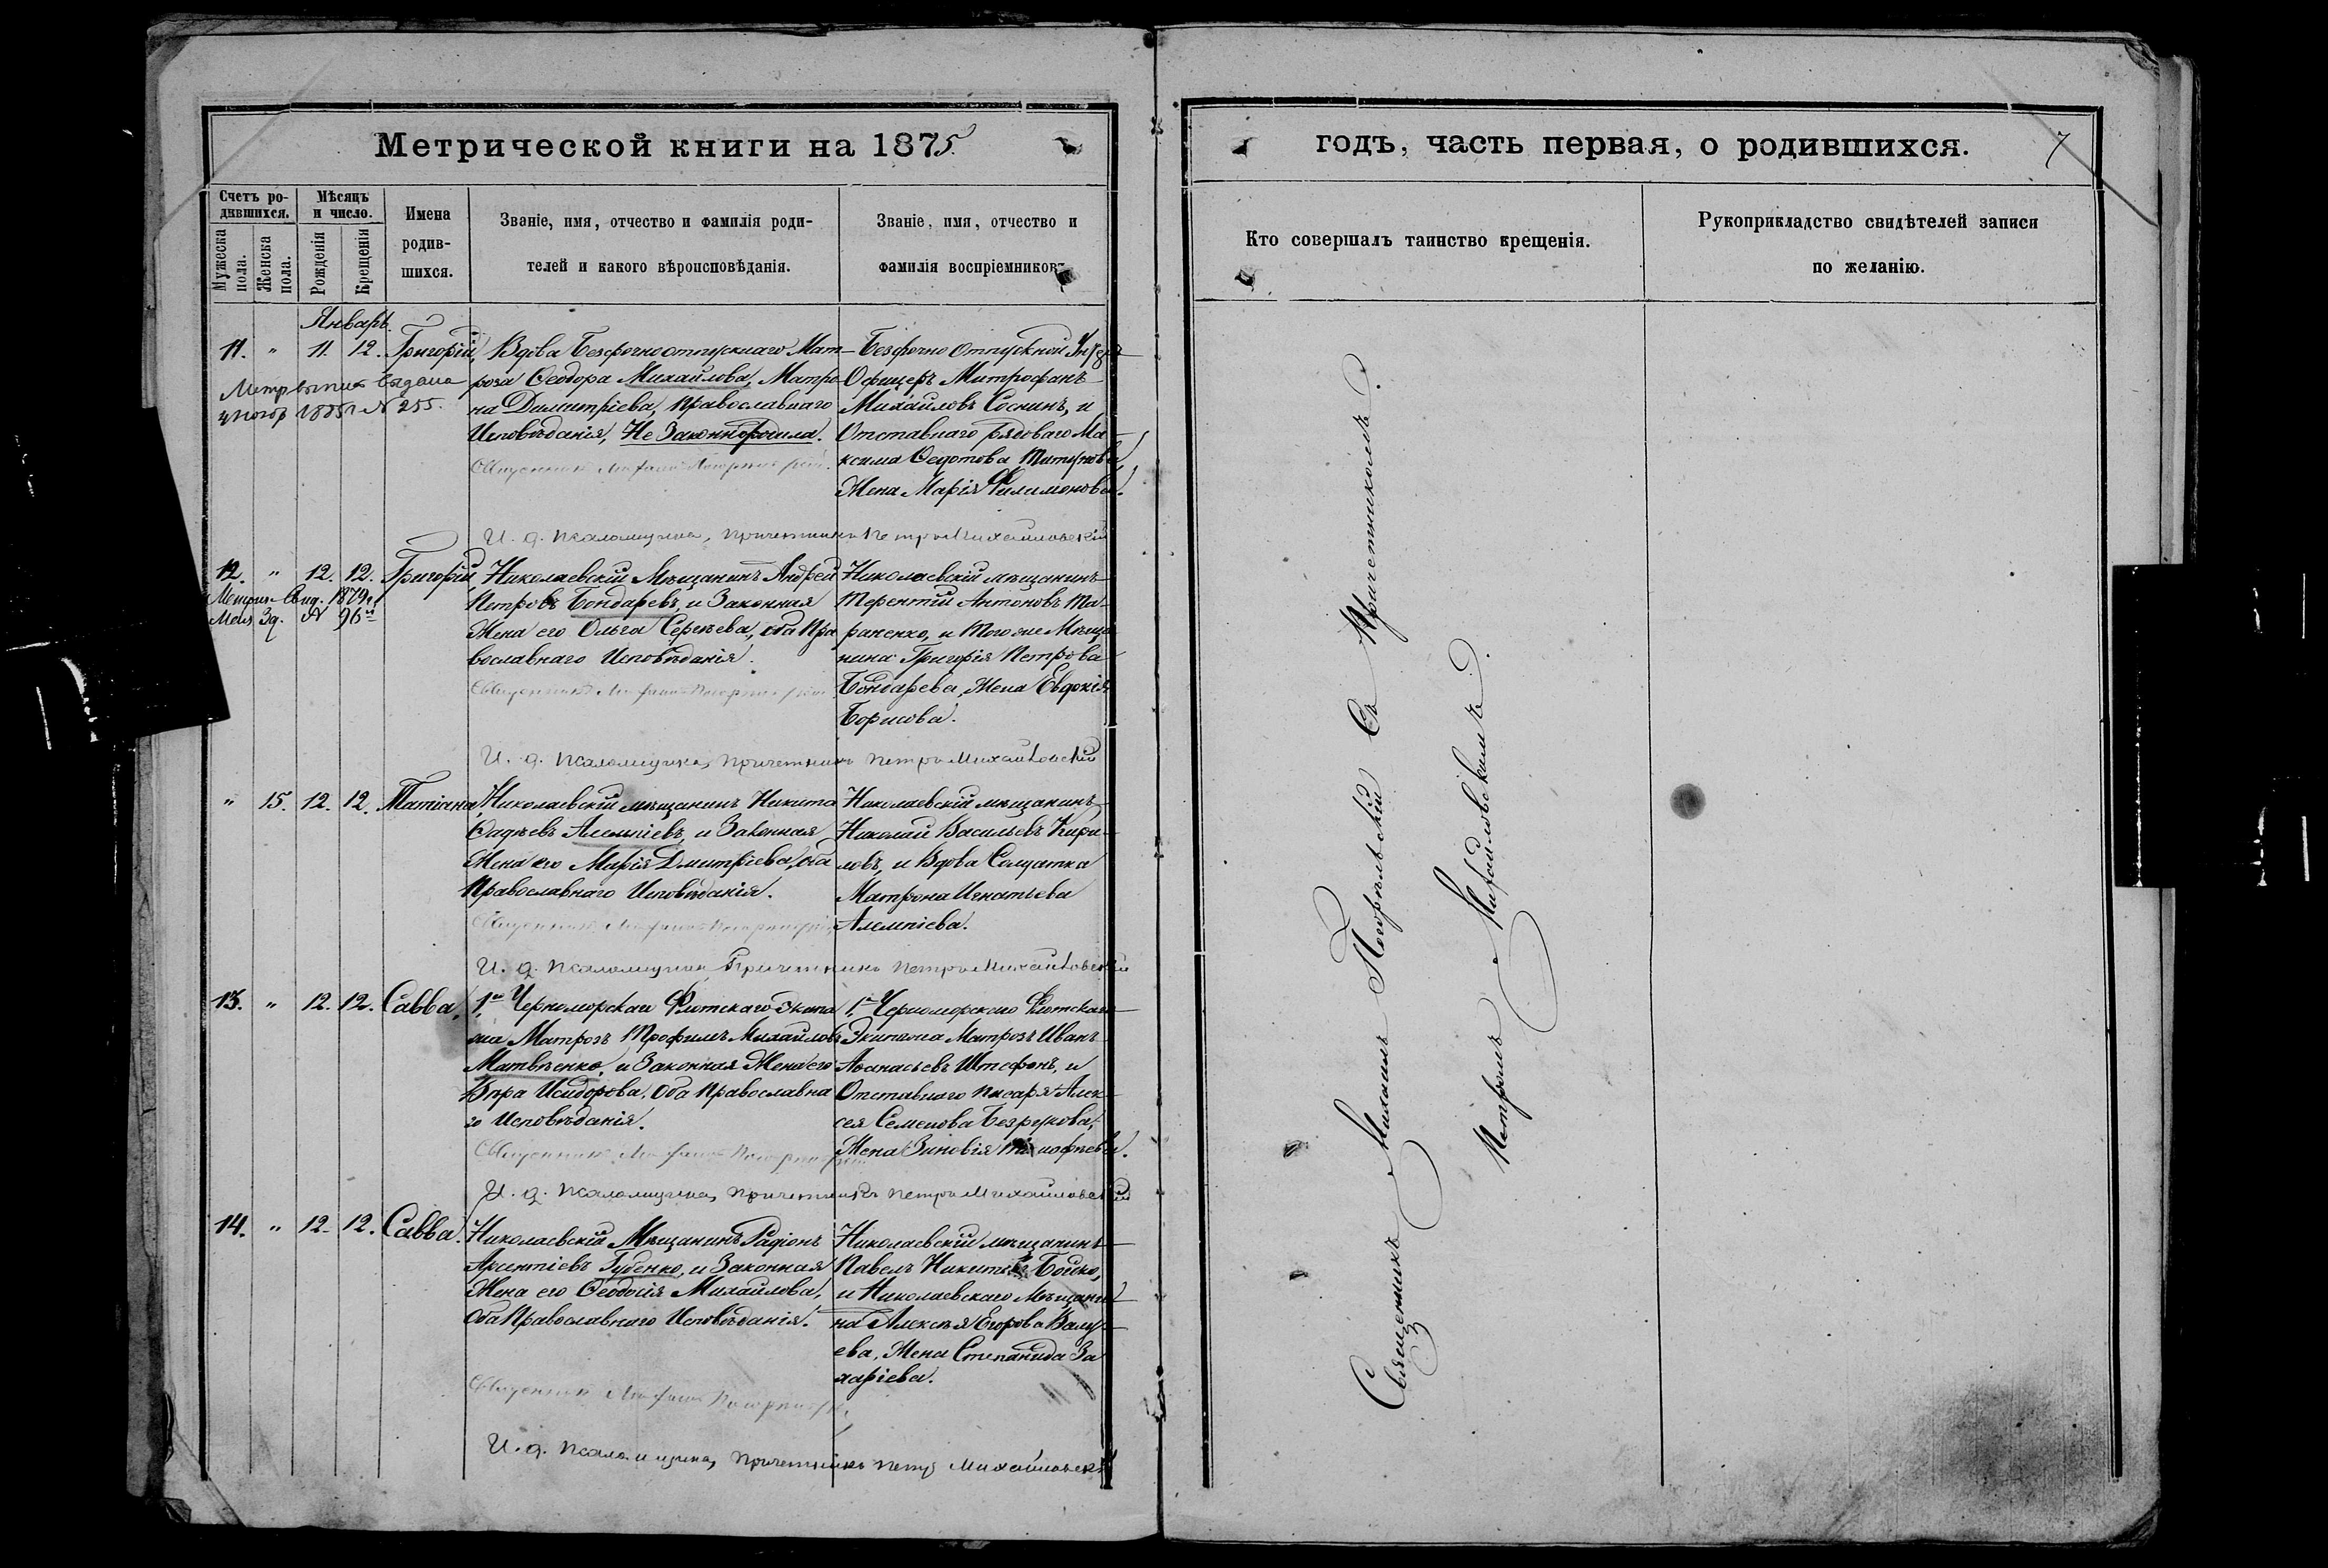 Метрической книги на 1875.
годъ, часть первая, о родившихся.
7
Счетъ ро-
дившихся.
Мѣсяцъ
и число.
Мужеска
пола.
Женска
пола.
Рожденія
Крещенія
Имена
родив-
шихся.
Званіе, имя, отчество и фамилія роди-
телей и какого вѣроисповѣданія.
Званіе, имя, отчество и
фамилія воспріемниковъ
Кто совершалъ таинство крещенія.
Рукоприкладство свидѣтелей записи
по желанію.
Январь.
11. " 11. 12. Григорій,
1885 № 255.
Вдова Безсрочноотпускнаго Мат-
роза Ѳеодора Михайлова, Матро
на Димитріева, Православнаго
Исповѣданія, Не Законнородила.
Священникъ
Безсрочно Отпускной Унтеръ
Офицеръ Митрофанъ
Михайловъ Соснинъ, и
Отставнаго рядоваго Ма-
ксима Ѳедотова
Жена Марія Филимонова.
И. д. псаломщика, причетникъ Петръ Михайловскій
12. " 12. 12. Григорій
Метрич. выд. 1879 г.
№ 96
Николаевскій Мѣщанинъ Андрей
Петровъ Бондаревъ, и Законная
Жена его Ольга Сергѣева, оба Пра
вославнаго Исповѣданія.
Священникъ
Николаевскій мѣщанинъ
Терентій Антоновъ Та-
раненко, и Того же Мѣща
нина Григорія Петрова
Бондарева, Жена Евдокія
Борисова.
И. д. псаломщика, причетникъ Петръ Михайловскій
" 15. 12. 12. Татіана,
Николаевскій мѣщанинъ Никита
Ѳадѣевъ Алемпіевъ, и Законная
Жена его Марія Дмитріева, оба
Православнаго Исповѣданія.
Священникъ
Николаевскій мѣщанинъ,
Николай Васильевъ Кири-
ловъ, и Вдова Солдатка
Матрона Игнатьева
Алемпіева.
И. д. псаломщика Причетникъ Петръ Михайловскій
13. " 12. 12. Савва,
1го Черноморскаго Флотскаго Экипа
жа Матрозъ Трофимъ Михайловъ
Матвѣенко, и Законная Жена его
Вѣра Исидорова, Оба Православна
го Исповѣданія.
Священникъ
1го Черноморскаго Флотскаго
Экипажа Матрозъ Иванъ
Аѳанасьевъ Штефонъ, и
Отставнаго писаря Алек-
сея Семенова Безрукова,
Жена Зиновія Тимофеева.
И. д. псаломщика, причетникъ Петръ Михайловскій
14. " 12. 12. Савва.
Николаевскій Мѣщанинъ Радіонъ
Арсентіевъ Губенко, и Законная
Жена его Ѳеодосія Михайлова,
Оба Православнаго Исповѣданія.
Священникъ
Николаевскій мѣщанинъ
Павелъ Никитинъ Бойко,
и Николаевскаго Мѣщани
на Алексѣя Егорова Валу-
ева, Жена Степанида За
харіева.
И. д. псаломщика, причетникъ Петръ Михайловскій
Священникъ Михаилъ Погорѣльскій Съ Причетникомъ
Петромъ Михайловскимъ.